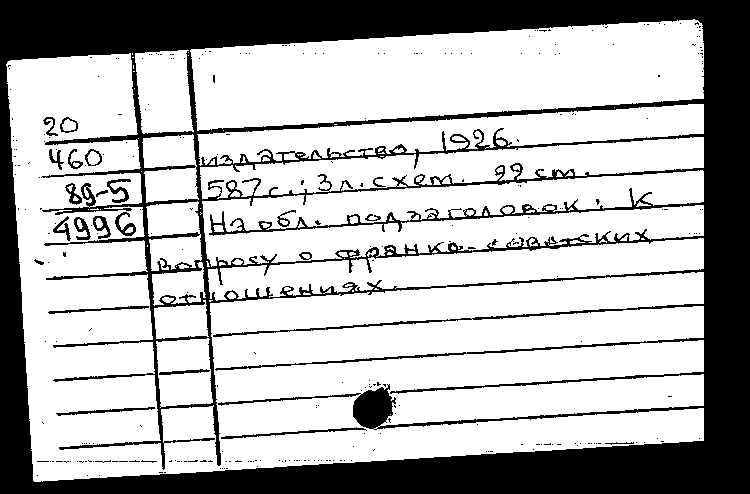 20
460 издательство, 1926.
89-5 587 с.; 3 л. схем. 22 cm.
4996 На обл. подзаголовок: К
вопросу о франко-советских
отношениях.